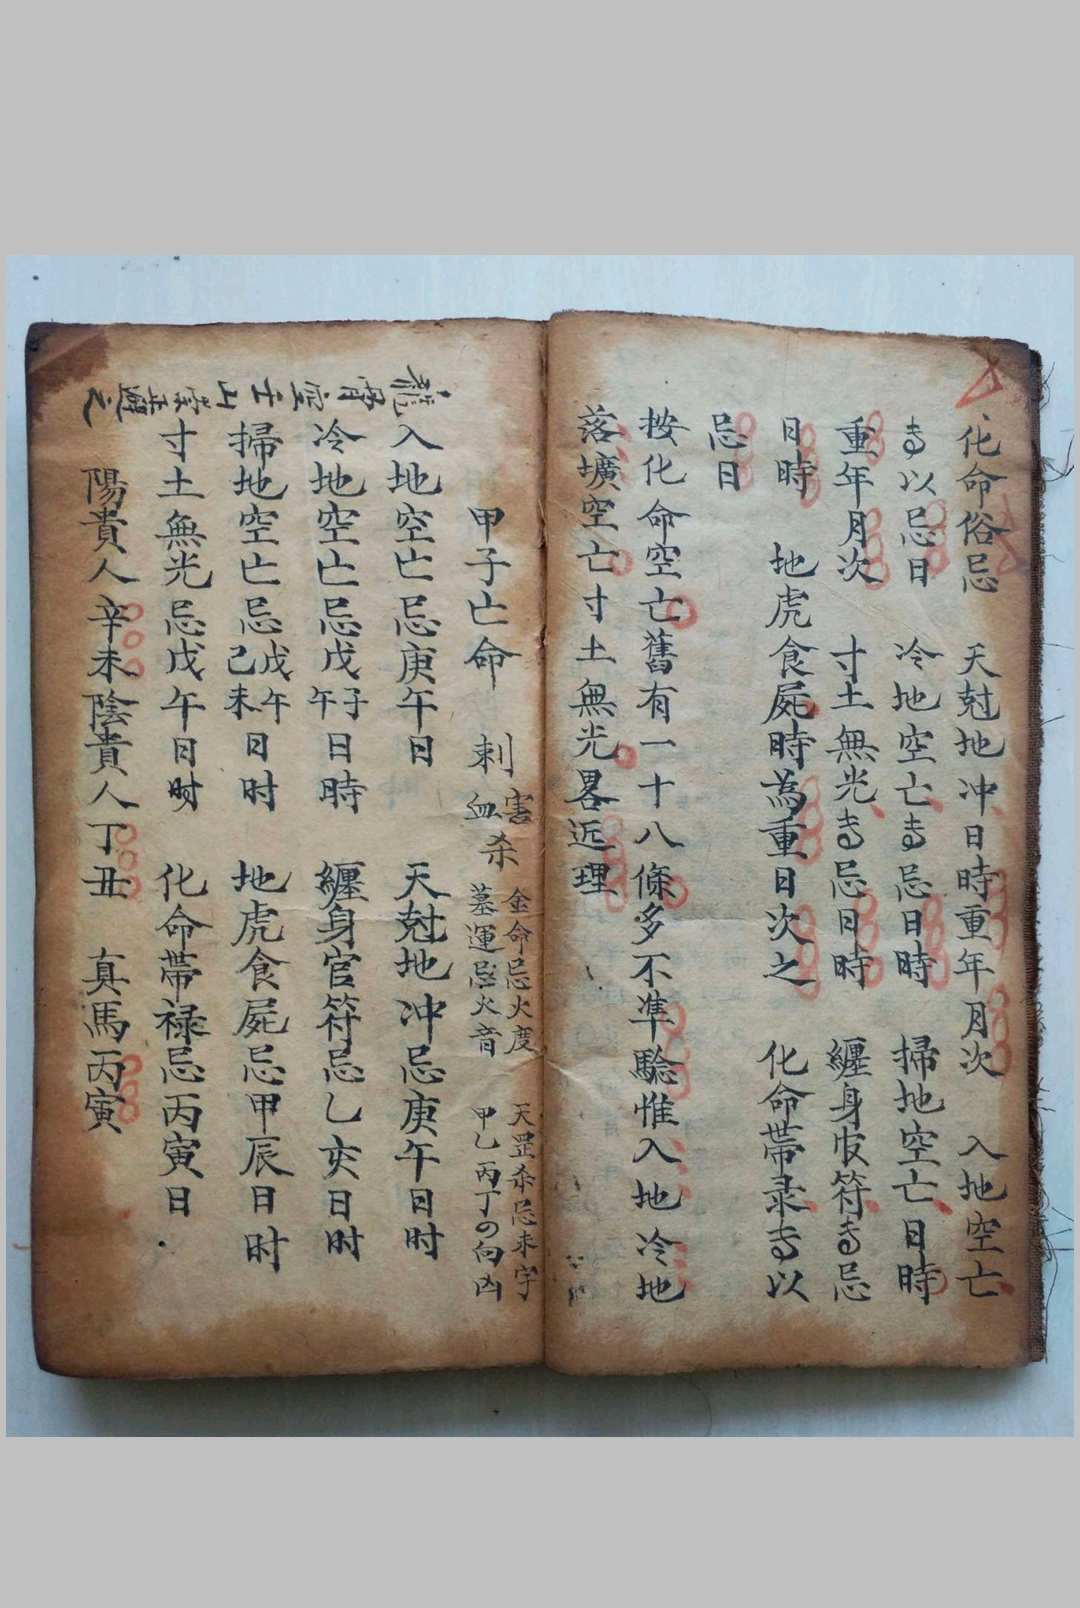 化命俗忌 天尅地冲日時重年月次 入地空亡
専以忌日 冷地空亡専忌日時 掃地空亡日時
重年月次 寸土無光専忌日時 纏身官符専忌
日時 地虎食屍時為重日次之 化命帶录専以
忌日
按化命空亡舊有一十八條多不準驗惟入地冷地
落壙空亡寸土無光畧近理
甲子亡命 刺害血杀
金命忌火度
墓運忌火音
天罡杀忌未字
甲乙丙丁の向凶
入地空亡忌庚午日 天尅地冲忌庚午日时
冷地空亡忌戊子午日時 纏身官符忌乙亥日时
掃地空亡忌戊午己未日时 地虎食屍忌甲辰日时
寸土無光忌戊午日时 化命帶禄忌丙寅日
陽貴人辛未陰貴人丁丑 真馬丙寅